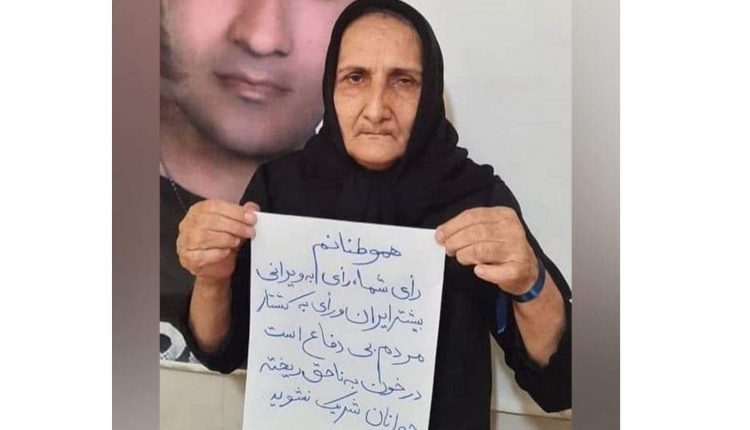 هموطنانم
رأی شما، رأی به ویرانی
بیشتر ایران و رأی به کشتار
مردم بی دفاع است
در خون به ناحق ریخته
جوانان شریک نشوید